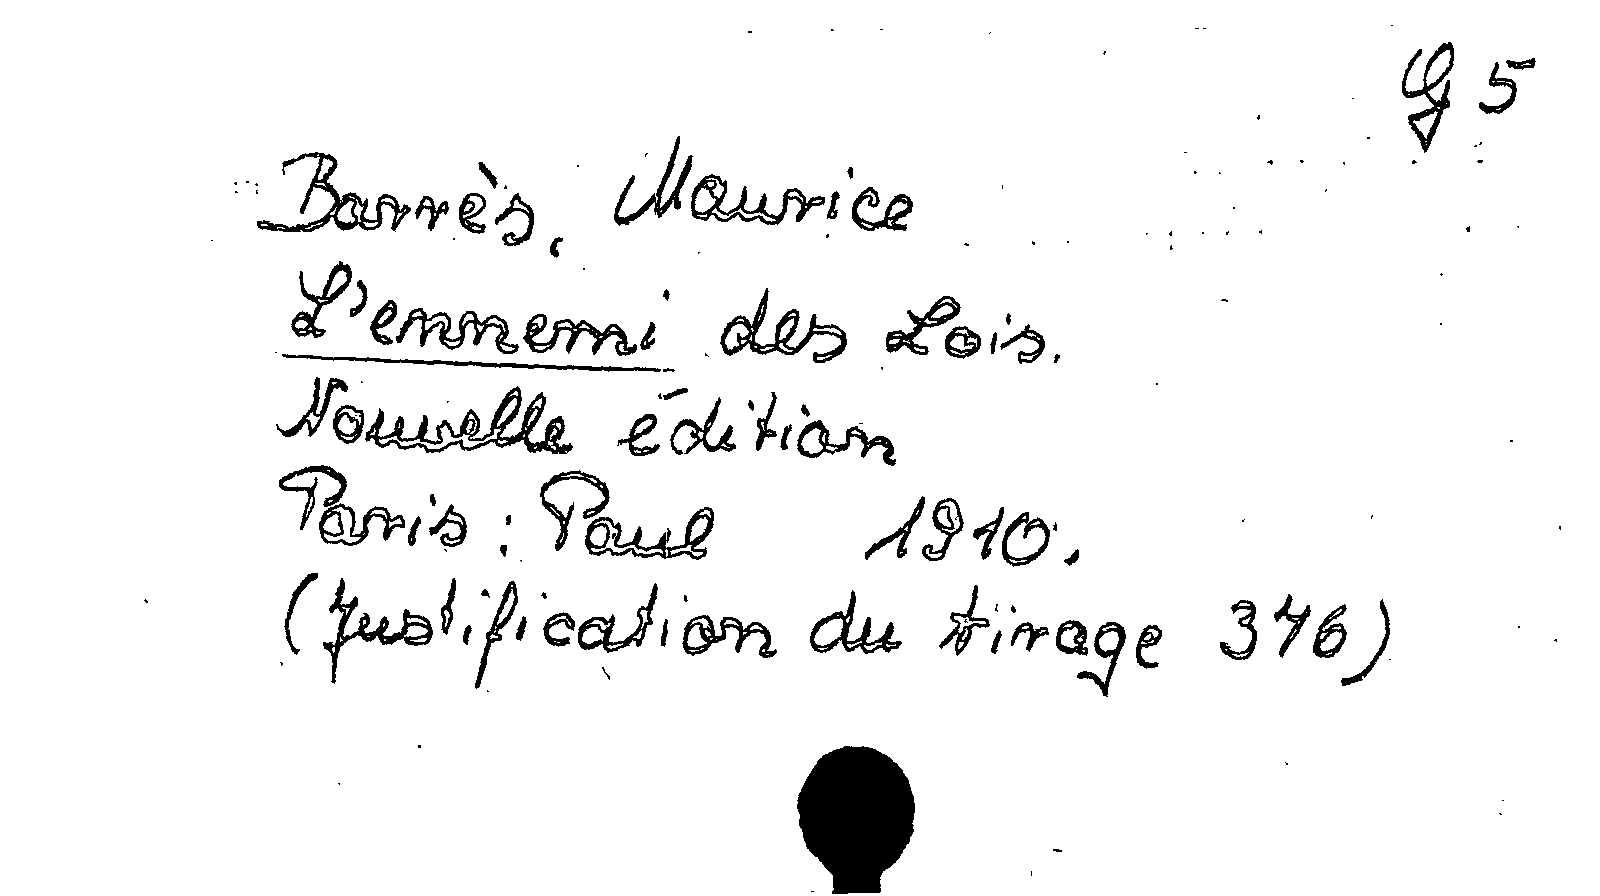 G 5
Barrès, Maurice
L'ennemi des Lois.
Nouvelle édition
Paris: Paul 1910.
(Justification du tirage 376)